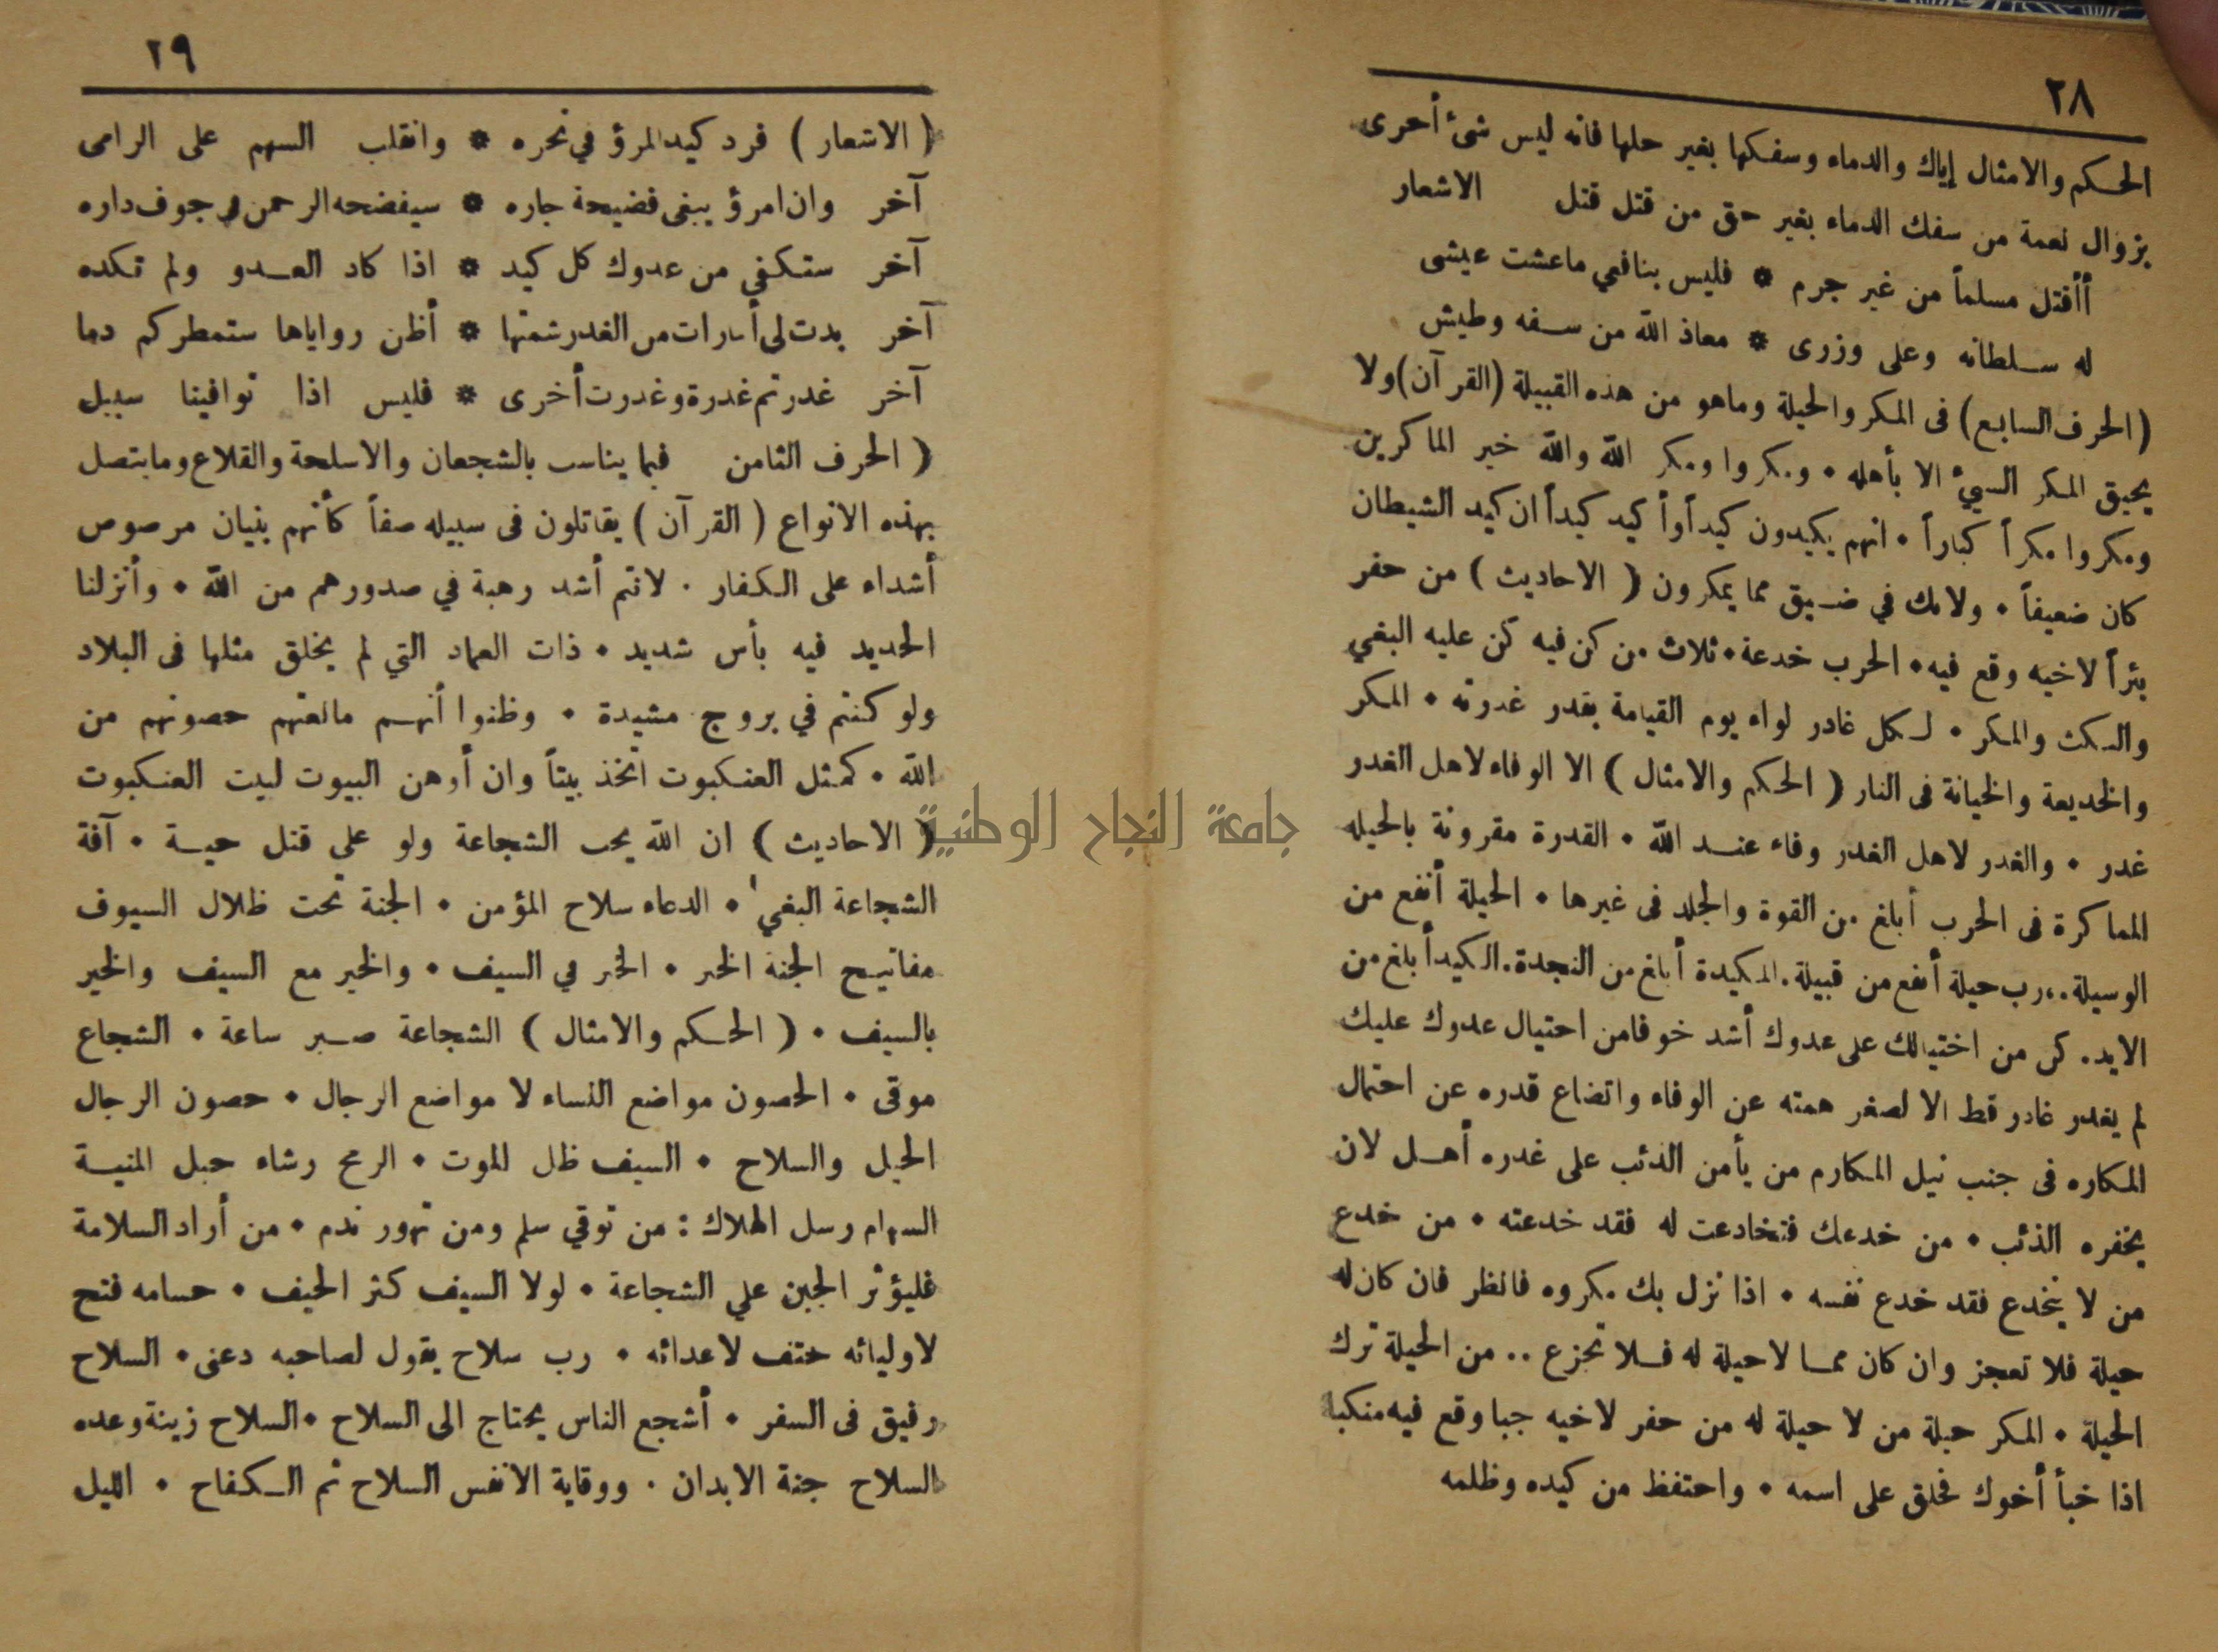 ٢٨
الحكم والامثال إياك والدماء وسفكها بغير حلها فانه ليس شئ أحرى
بزوال نعمة من سفك الدماء بغير حق من قتل قتل الاشعار
أأقتل مسلماً من غير جرم * فليس بنافعي ماعشت عيشى
له سلطانه وعلى وزرى * معاذ الله من سفه وطيش
(الحرف السابع) فى المكر والحيلة وماهو من هذه القبيلة (القرآن) ولا
يحيق المكر السيئ الا بأهله • ومكروا ومكر الله والله خير الماكرين
ومكروا مكراً كباراً • انهم يكيدون كيداً وأكيد كيداً ان كيد الشيطان
كان ضعيفاً • ولاتك في ضيق مما يمكرون ( الاحاديث ) من حفر
بئراً لاخيه وقع فيه • الحرب خدعة • ثلاث من كن فيه كن عليه البغي
والنكث والمكر • لكل غادر لواء يوم القيامة بقدر غدرته • المكر
والخديعة والخيانة فى النار ( الحكم والامثال ) الا الوفاء لاهل الغدر
غدر • والغدر لاهل الغدر وفاء عند الله • القدرة مقرونة بالحيله
المماكرة فى الحرب أبلغ من القوة والجلد فى غيرها • الحيلة أنفع من
الوسيلة . رب حيلة أنفع من قبيلة . المكيدة أبلغ من النجدة . الكيد أبلغ من
الايد . كن من اختيالك على عدوك أشد خوفامن احتيال عدوك عليك
لم يغدر غادر قط الا لصغر همته عن الوفاء واتضاع قدره عن احتمال
المكاره فى جنب نيل المكارم من يأمن الذئب على غدره أهل لان
يخفره الذئب • من خدعك فتخادعت له فقد خدعته • من خدع
من لا ينخدع فقد خدع نفسه • اذا نزل بك مكروه فانظر فان كان له
حيلة فلا تعجز وان كان مما لاحيلة له فلا تجزع .. من الحيلة ترك
الحيلة • المكر حيلة من لا حيلة له من حفر لاخيه جبا وقع فيه منكبا
اذا خبأ أخوك فحلق على اسمه • واحتفظ من كيده وظلمه
٢٩
( الاشعار ) فرد كيد المرؤ في نحره * وانقلب السهم على الرامى
آخر وان امرؤ يبغى فضيحة جاره * سيفضحه الرحمن في جوف داره
آخر ستكفي من عدوك كل كيد * اذا كاد العدو ولم تكده
آخر بدت لى أمارات من الغدر شمتها * أظن رواياها ستمطركم دما
آخر غدرتم غدرة وغدرت أخرى * فليس اذا توافينا سبيل
( الحرف الثامن فيما يناسب بالشجعان والاسلحة والقلاع ومايتصل
بهذه الانواع ( القرآن ) يقاتلون فى سبيله صفاً كأنهم بنيان مرصوص
أشداء على الكفار . لانتم أشد رهبة في صدورهم من الله • وأنزلنا
الحديد فيه بأس شديد • ذات العماد التي لم يخلق مثلها فى البلاد
ولو كنتم في بروج مشيدة • وظنوا أنهم مانعتهم حصونهم من
الله • كمثل العنكبوت اتخذ بيتاً وان أوهن البيوت لبيت العنكبوت
( الاحاديث ) ان الله يحب الشجاعة ولو على قتل حية • آفة
الشجاعة البغي • الدعاء سلاح المؤمن • الجنة تحت ظلال السيوف
مفاتيح الجنة الخير • الخير في السيف • والخير مع السيف والخير
بالسيف • ( الحكم والامثال ) الشجاعة صبر ساعة • الشجاع
موقى • الحصون مواضع النساء لا مواضع الرجال • حصون الرجال
الخيل والسلاح • السيف ظل الموت • الرمح رشاء حبل المنية
السهام رسل الهلاك : من توقي سلم ومن تهور ندم • من أراد السلامة
فليؤثر الجبن علي الشجاعة • لولا السيف كثر الحيف • حسامه فتح
لاوليائه حتف لاعدائه • رب سلاح يقول لصاحبه دعنى • السلاح
رفيق فى السفر • أشجع الناس يحتاج الى السلاح • السلاح زينة وعده
السلاح جنة الابدان . ووقاية الانفس السلاح ثم الكفاح • الليل
جامعة النجاح الوطنية